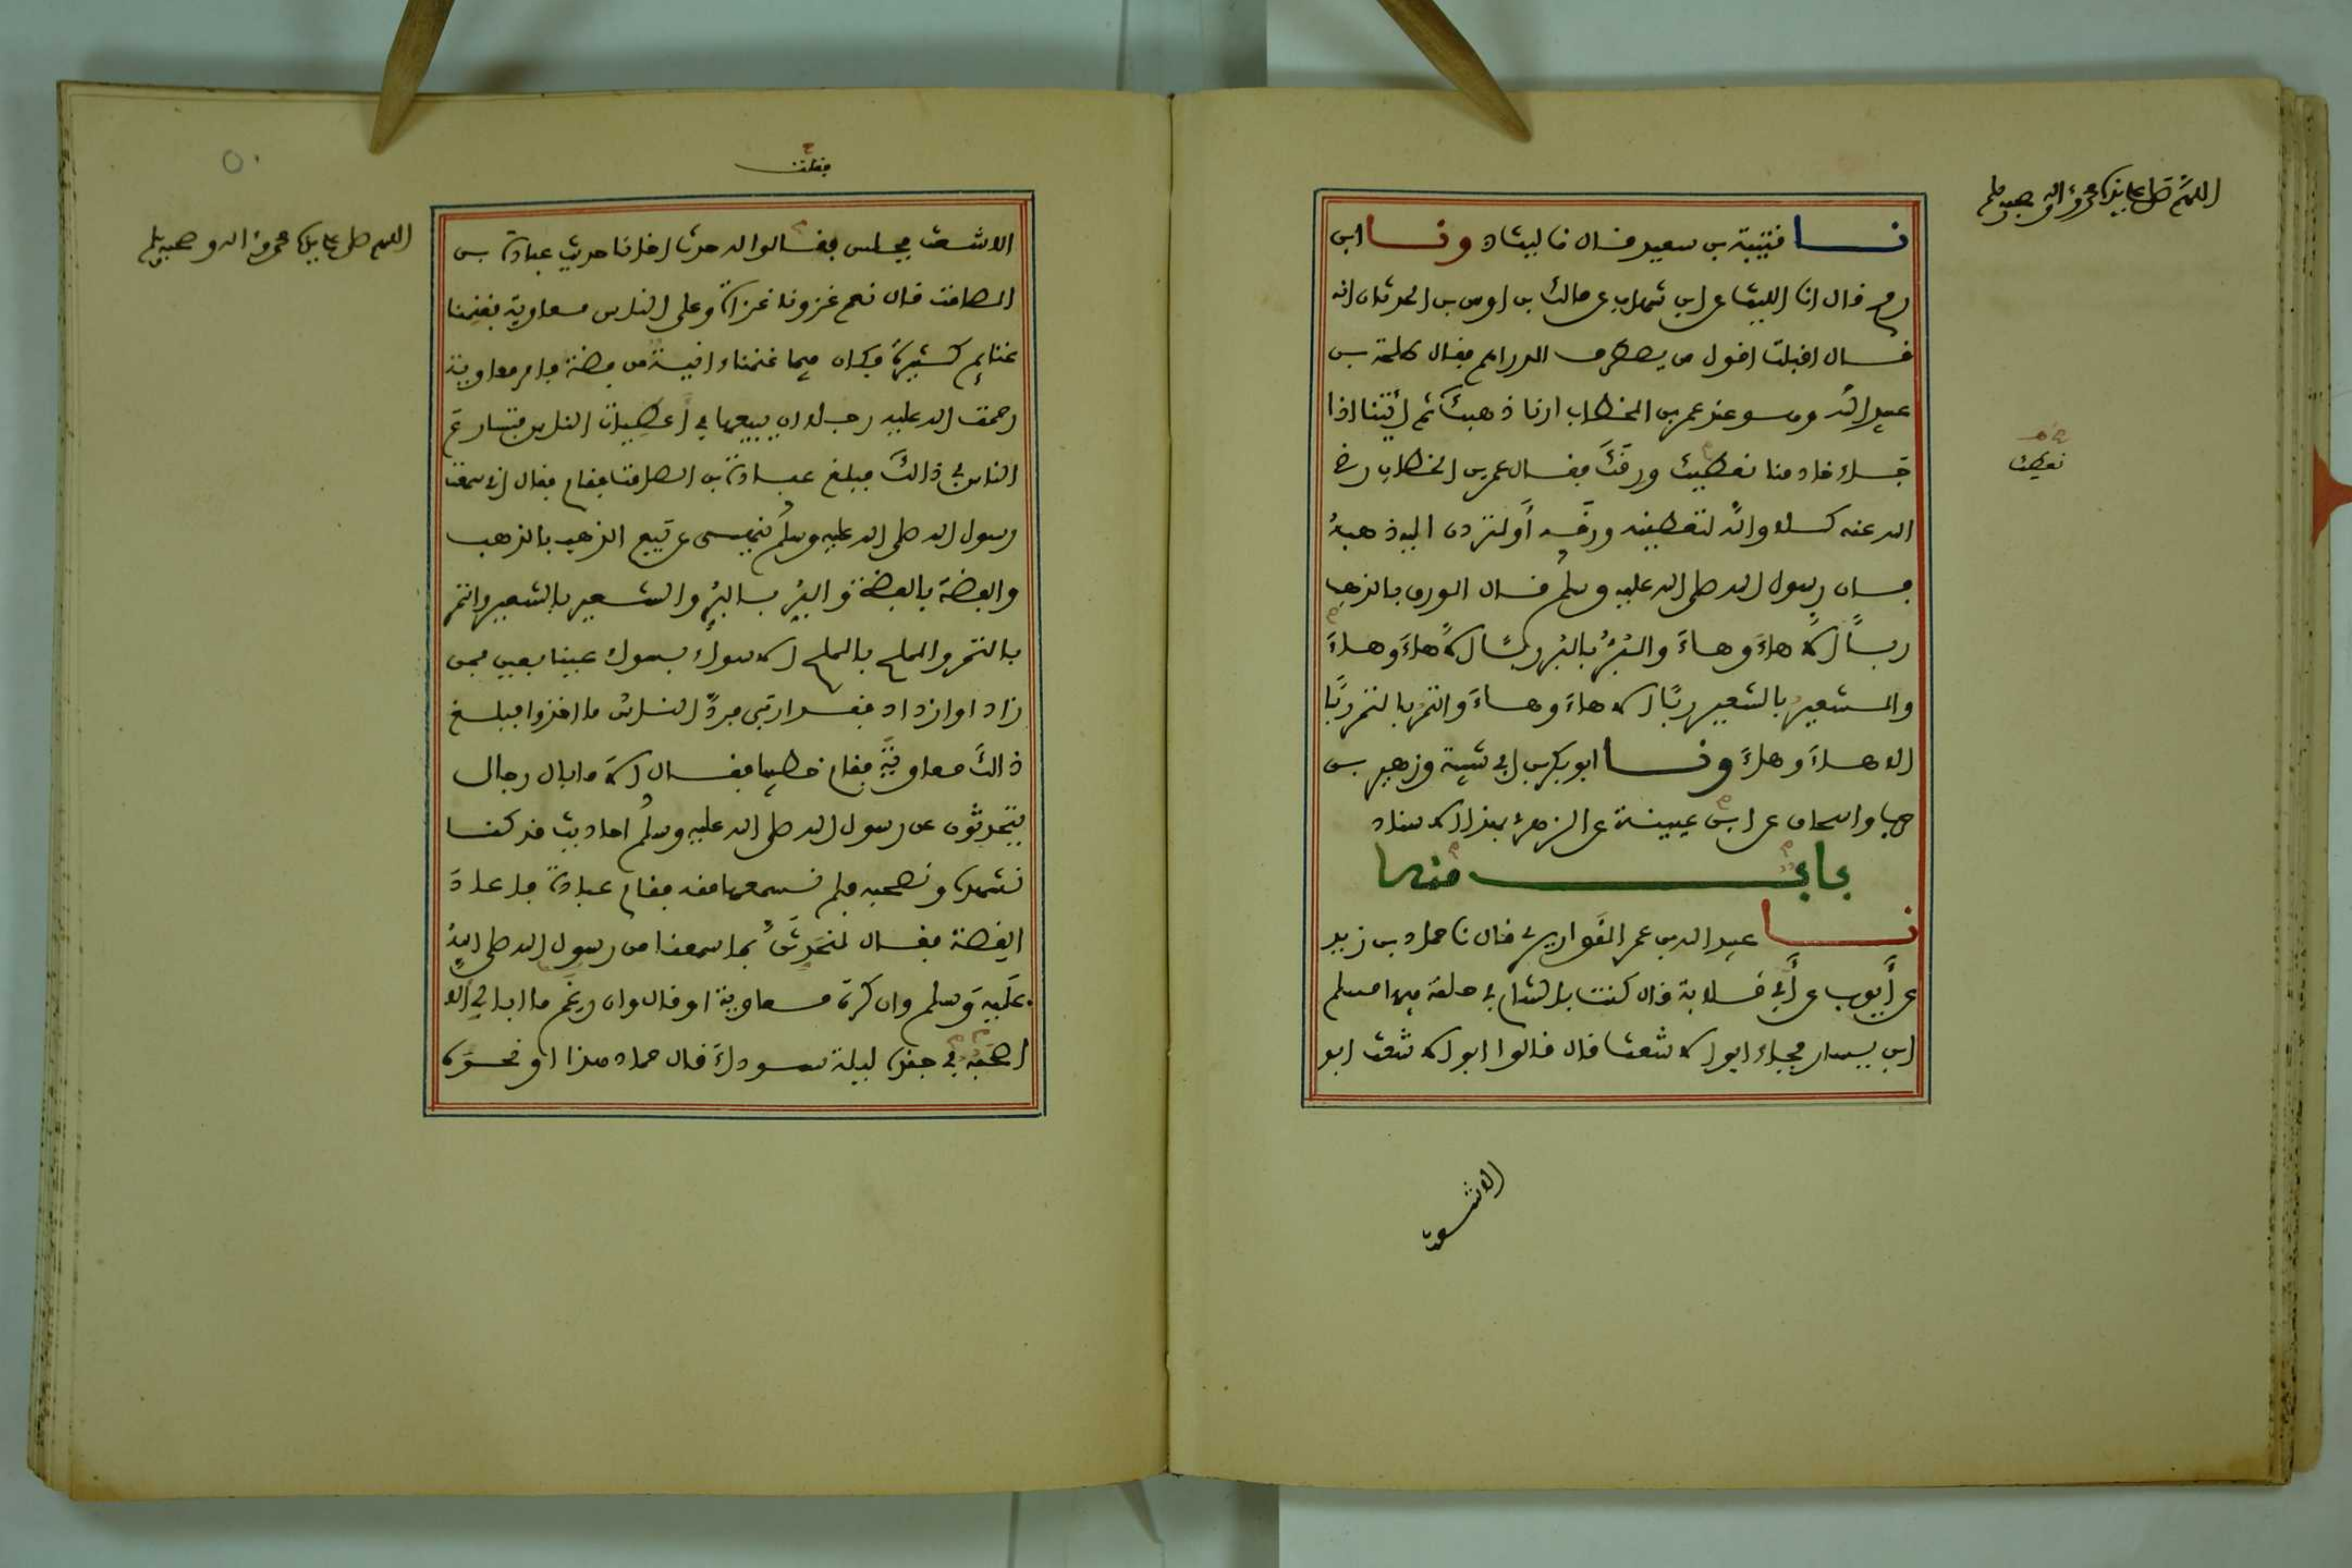 اللهم صل على سيدنا محمد وءاله وصحبه وسلم
نا قتيبة بن سعيد قال نا ليث ح ونا ابن
رمح قال انا الليث عن ابن شهاب عن مالك بن اوس بن الحدثان انه
قال اقبلت اقول من يصطرف الدراهم فقال طلحة بن
عبيد الله وهو عند عمر بن الخطاب ارنا ذهبك ثم ائتنا اذا
جاء خادمنا نعطيك ورقك فقال عمر بن الخطاب رضي
نعطك
الله عنه كلا والله لتعطينه ورقه أو لتردن اليه ذهبه
فان رسول الله صلى الله عليه وسلم قال الورق بالذهب
ربا الا هاء وهاء والبر بالبر ربا الا هاء وهاء
والشعير بالشعير ربا الا هاء وهاء والتمر بالتمر ربا
الا هاء وهاء ونا ابو بكر بن ابي شيبة وزهير بن
حرب واسحاق عن ابن عيينة عن الزهري بهذا الاسناد
باب منه
نا عبيد الله بن عمر القواريري قال نا حماد بن زيد
عن أيوب عن أبي قلابة قال كنت بالشام في حلقة فيها مسلم
ابن يسار فجاء ابو الاشعث قال قالوا ابو الاشعث ابو
الاشعث
فقلت
اللهم صل على سيدنا محمد وءاله وصحبه وسلم
الاشعث فجلس فقالوا له حدث اخانا حديث عبادة بن
الصامت قال نعم غزونا غزاة وعلى الناس معاوية فغنمنا
غنايم كثيرة فكان فيما غنمنا ءانية من فضة فامر معاوية
رحمت الله عليه رجلا ان يبيعها في أعطيات الناس فتسارع
الناس في ذالك فبلغ عبادة بن الصامت فقام فقال اني سمعت
رسول الله صلى الله عليه وسلم ينهى عن بيع الذهب بالذهب
والفضة بالفضة والبر بالبر والشعير بالشعير والتمر
بالتمر والملح بالملح الا سواء بسواء عينا بعين فمن
زاد او ازداد فقد اربى فرد الناس ما اخذوا فبلغ
ذالك معاوية فقام خطيبا فقال الا ما بال رجال
يتحدثون عن رسول الله صلى الله عليه وسلم احاديث قد كنا
نشهده ونصحبه فلم نسمعها منه فقام عبادة فاعاد
القصة فقال لنحدثن بما سمعنا من رسول الله صلى الله
عليه وسلم وان كره معاوية او قال وان رغم ما ابالي الا
اصحبه في جنده ليلة سوداء قال حماد هذا او نحوه